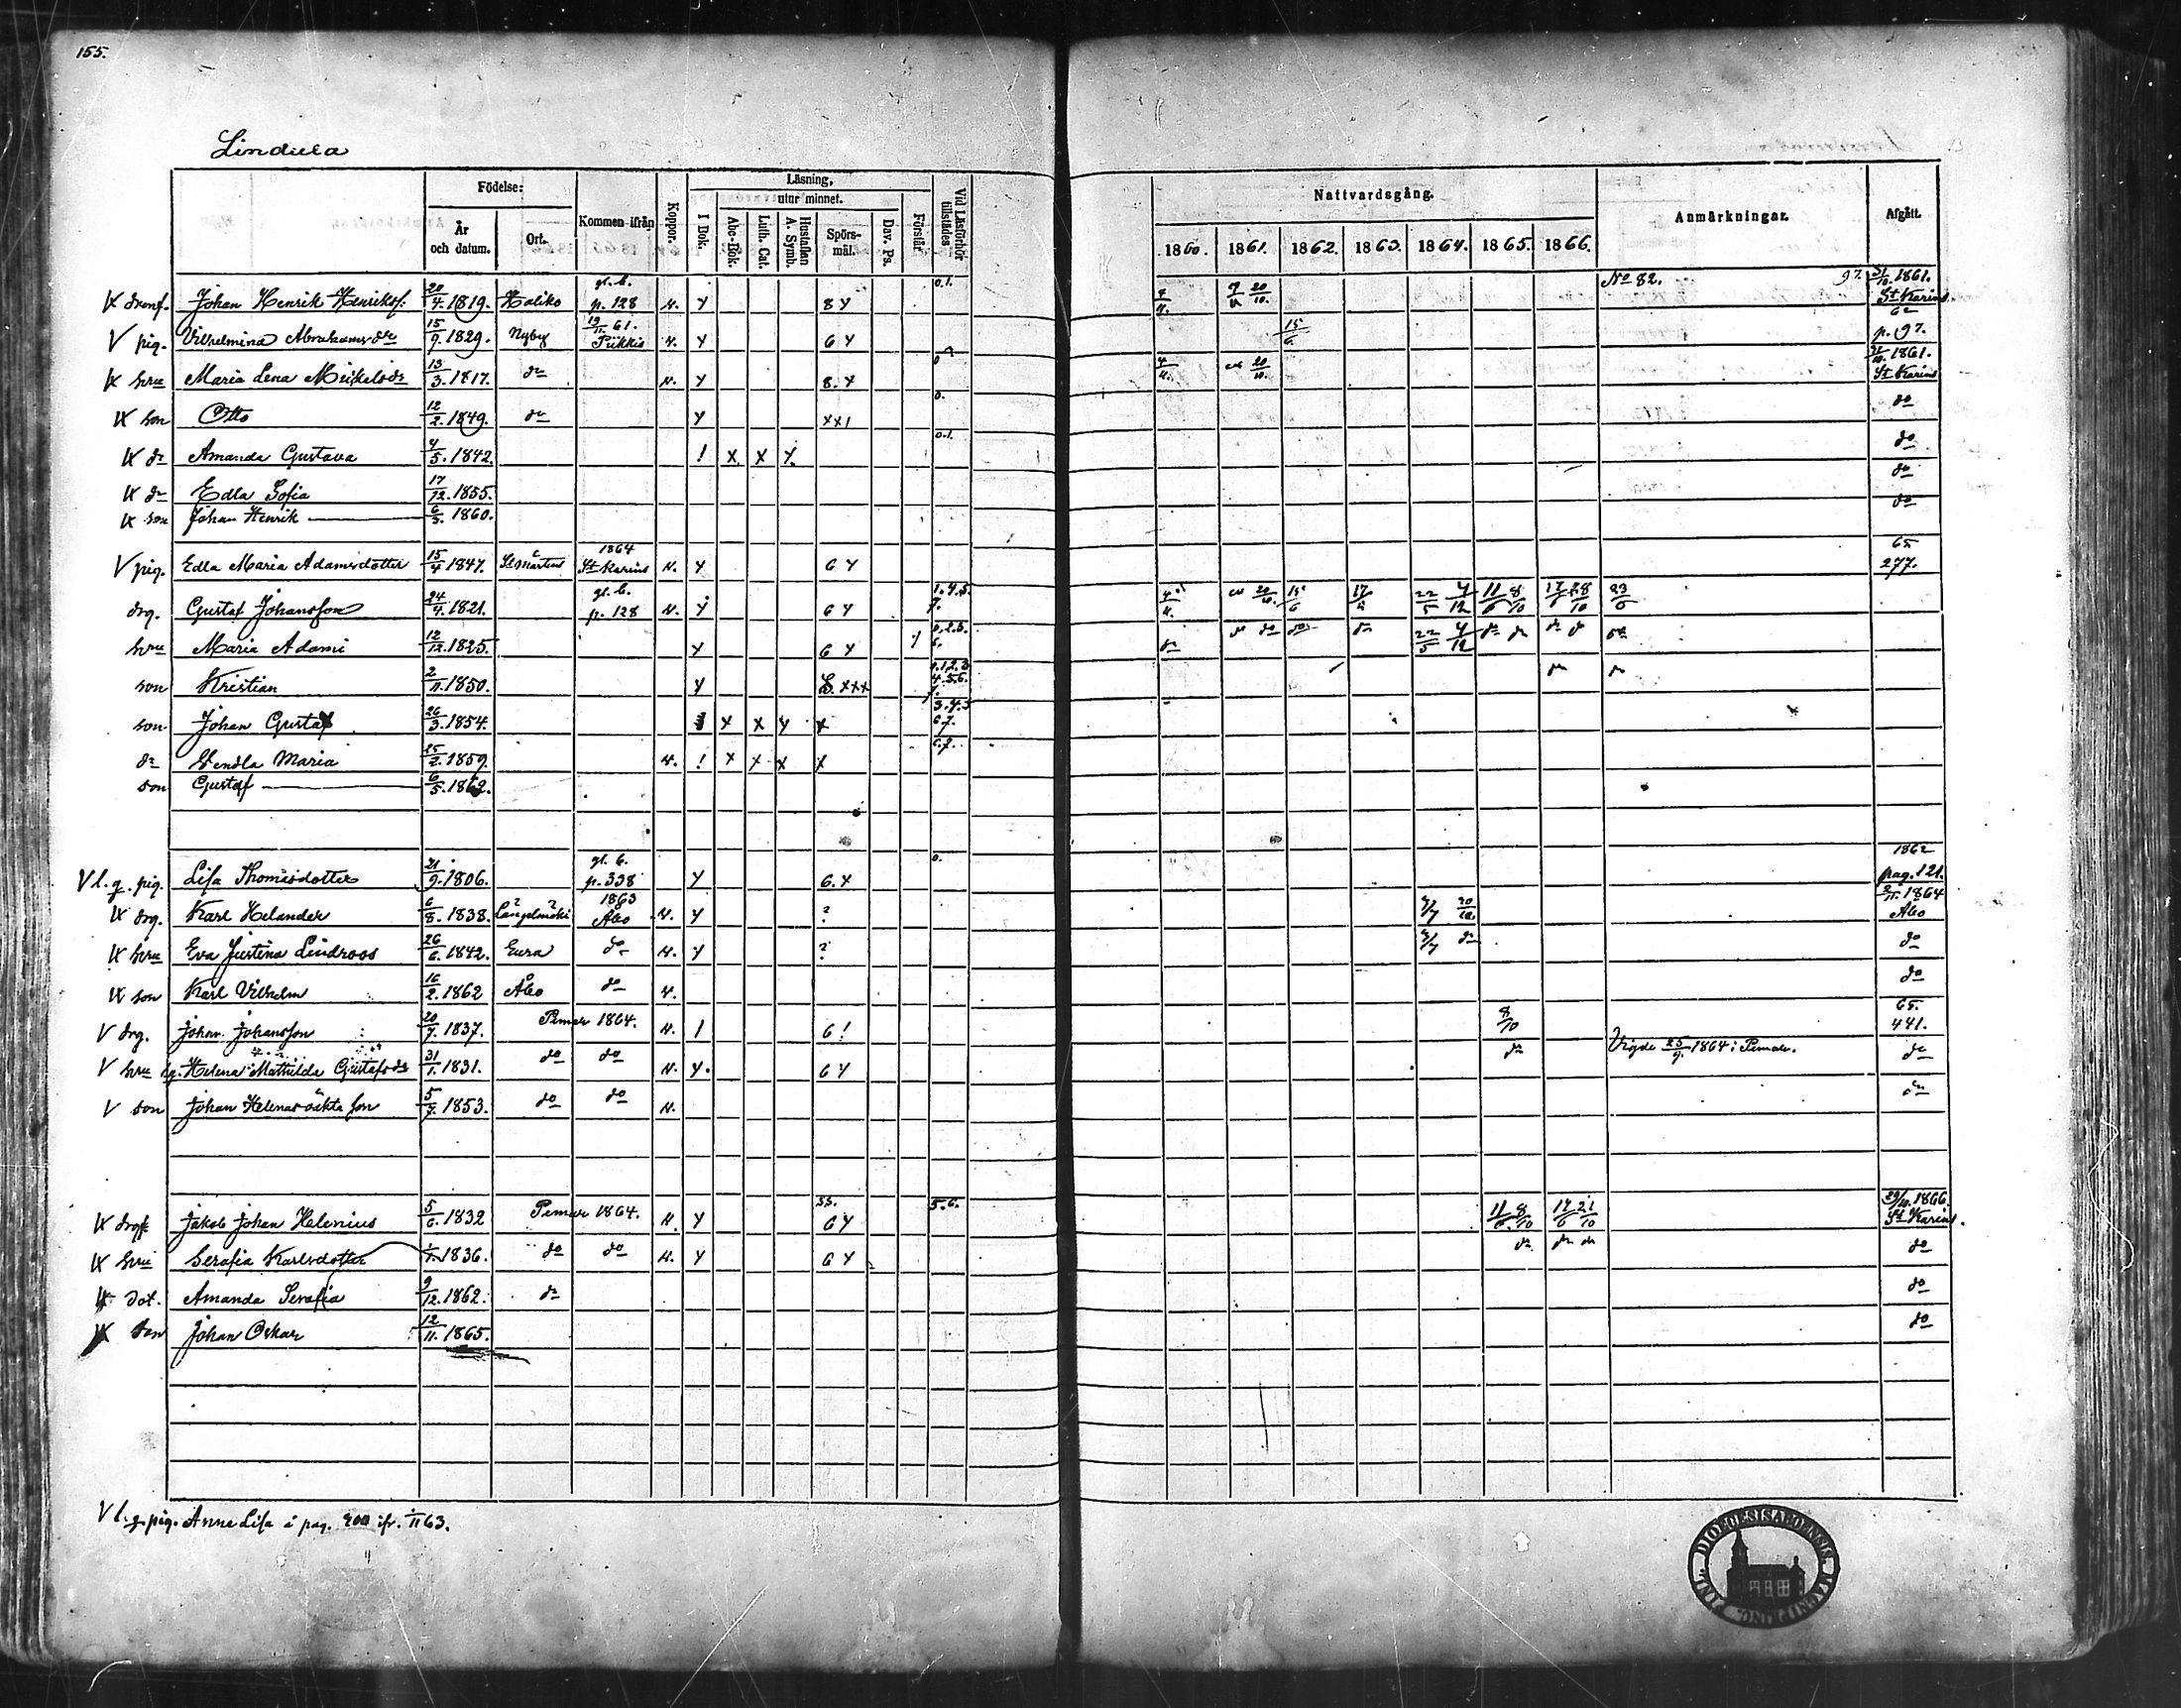 155.
Lindula
Födelse:
År och datum.
Ort.
Kommen ifrån
Koppor.
Läsning,
I Bok.
utur minnet.
Abc-Bok.
Luth. Cat.
Hustaflan A. Symb.
Spörs-mål.
Dav. Ps.
Förstår
Vid Läsförhör tillstädes
Nattvardsgång.
1860. 1861. 1862. 1863. 1864. 1865. 1866.
Anmärkningar.
Afgått.
Johan Henrik Henriksf. 20/4. 1819. Haliko gl. b. p. 128 N. Y 8 Y 0.1. 4/11. 20/10. No 82. 97. 31/10. 1861. St Karins
V pig. Vilhelmina Abrahamsdr 15/9. 1829. Nyby 19/11. 61. Pikkis N. Y 6 Y 15/6. 62 p. 97.
IX hru Maria Lena Mickelsdr 13/3. 1817. do N. Y 8. Y 0 4/11. 20/10. 31/10. 1861. St Karins
IX son Otto 12/2. 1849. do Y xx1 0. do
IX dr Amanda Gustava 4/5. 1842. ! X X Y. 0.1. do
IX dr Edla Sofia 17/12. 1855. do
IX son Johan Henrik 6/3. 1860. do
V pig. Edla Maria Adamsdotter 15/4 1847. St Mårtens 1864 St Karins N. Y 6 Y 65 277.
drg. Gustaf Johansson 24/4. 1821. gl. b. p. 128 N. Y 6 Y 1.4.5. 7. 4/11. 20/10. 15/6 17/5 22/5 4/12 11/6 8/10 17/6 28/10 23/6
hru Maria Adami 12/12. 1825. Y 6 Y 0.2.5. 6. do do do do 22/5 4/12 do do do do do
son Kristian 2/11. 1850. Y xxx 0.1.2.3. 4.5.6. 7. do do
son Johan Gustaf 26/3. 1854. X X Y X 3.4.5 6.7.
dr Vendla Maria 25/2. 1859. N. ! X X X X 6.7.
son Gustaf 6/5. 1862.
V l. q. pig. Lisa Thomasdotter 21/9. 1806. gl. b. p. 338 Y 6. X 0. 1862 pag. 121.
IX drg. Karl Helander 6/8. 1838. Längelmäki 1863 Åbo N. Y ? 3/7 30/10. 2/11. 1864 Åbo
IX hru Eva Justina Lindroos 26/6. 1842. Eura do N. Y ? 3/7 do do
IX son Karl Vilhelm 16/2. 1862 Åbo do N. do
V drg. Johan Johansson 20/7. 1837. Pemar 1864. N. 1 6 ! 8/10 65. 441.
V hru Helena Mathilda Gustafsdr 31/1. 1831. do do N. Y. 6 Y do Vigde 25/9. 1864 i Pemar. do
V son Johan Helenas oäkta son 5/7. 1853. do do N. do
IX Jakob Johan Helenius 5/6. 1832 Pemar 1864. N. Y 6 Y 5.6. 11/6. 8/10 17/6 21/10 29/10. 1866 St Karins.
IX hru Serafia Karlsdotter 1836. do do N. Y 6 Y do do do do
IX dot. Amanda Serafia 9/12. 1862. do do
IX son Johan Oskar 12/11. 1865. do
V l. q. pig. Anna Lisa å pag. 400 ifr. 1/11 63.
DIOECESIS ABOENSIS